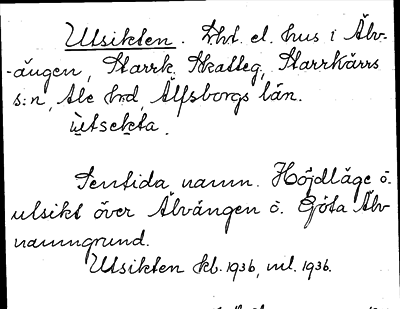 Utsikten. Lht. el. hus i Älv-
-ängen, Starrk. Skatteg, Starrkärrs
s:n, Ale hrd, Älfsborgs län.
ùtsekta.
Sentida namn. Höjdläge o.
utsikt över Älvängen o. Göta Älv
namngrund.
Utsikten kb. 1936, ml. 1936.